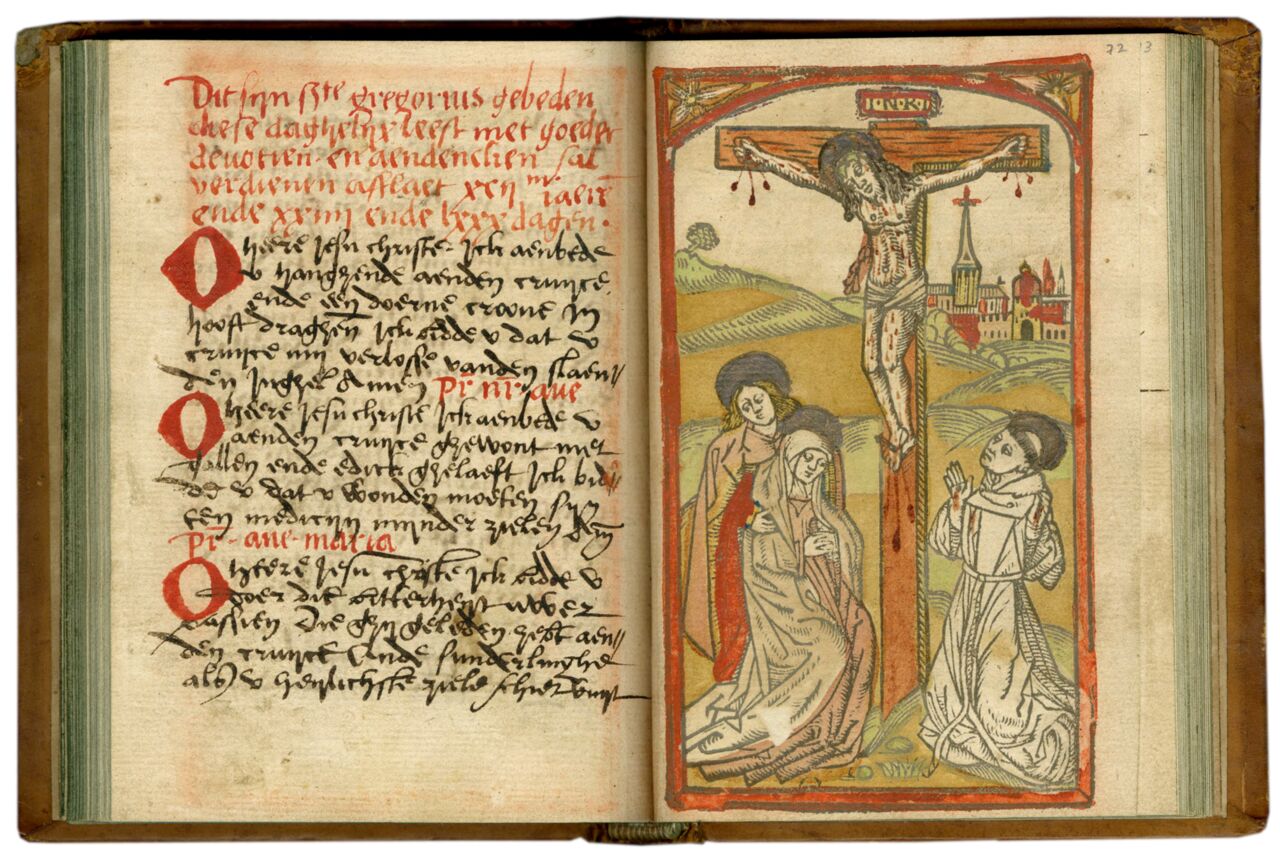 Dit sijn ste gregorius gebeden
diese daghelijx leest met goeder
devotien en aendencken sal
verdienen aflaet xcij m iaere
ende xxiiij ende lxxx dagen.
O heere jesu christe Ick aenbede
v hanghende aenden cruijce
ende een doerne croone in
hooft draghen Ick bidde v dat v
cruijce mij verlosse vanden slaen
den Inghel Amen pr nr ave
O heere jesu christe Ick aenbede v
aenden cruijce ghewont met
gallen ende edick ghelaeft Ick bid
de v dat v wonden moeten sijn
een medecijn mijnder zielen Am
pr ave maria
O heere jesu christe Ick bidde v
doer die bitterheijt uwer
passien Die ghij geleden hebt aen
den cruijce Ende sunderlinghe
als v
72 13